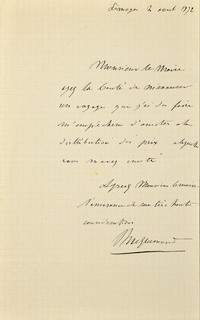 Limoges 2 aout 1872
Monsieur le Maire
ayez la bonté de m'excuser
un voyage que j'ai dû faire
m'empêchera d'assister à la
distribution des prix à laquelle
vous m'avez invité
Agréez Monsieur
l'assurance de ma très haute
considération